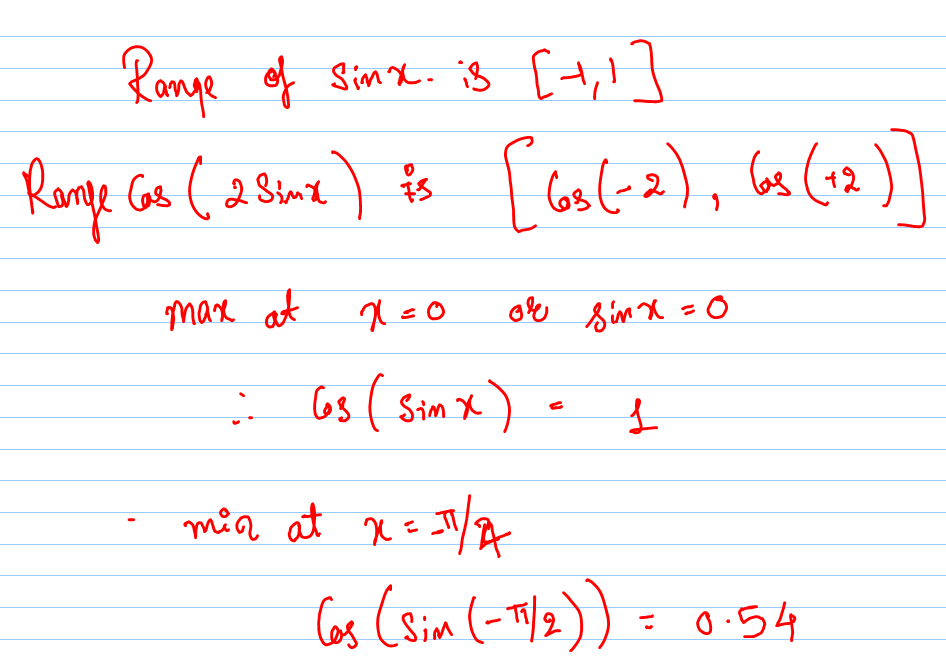 Range of sinx. is [-1,1]
Range Cos (2 Sinx) is [Cos(-2), Cos(+2)]
max at x = 0 or sinx = 0
∴ Cos(Sinx) = 1
min at x = -π/2
Cos(Sin(-π/2)) = 0.54